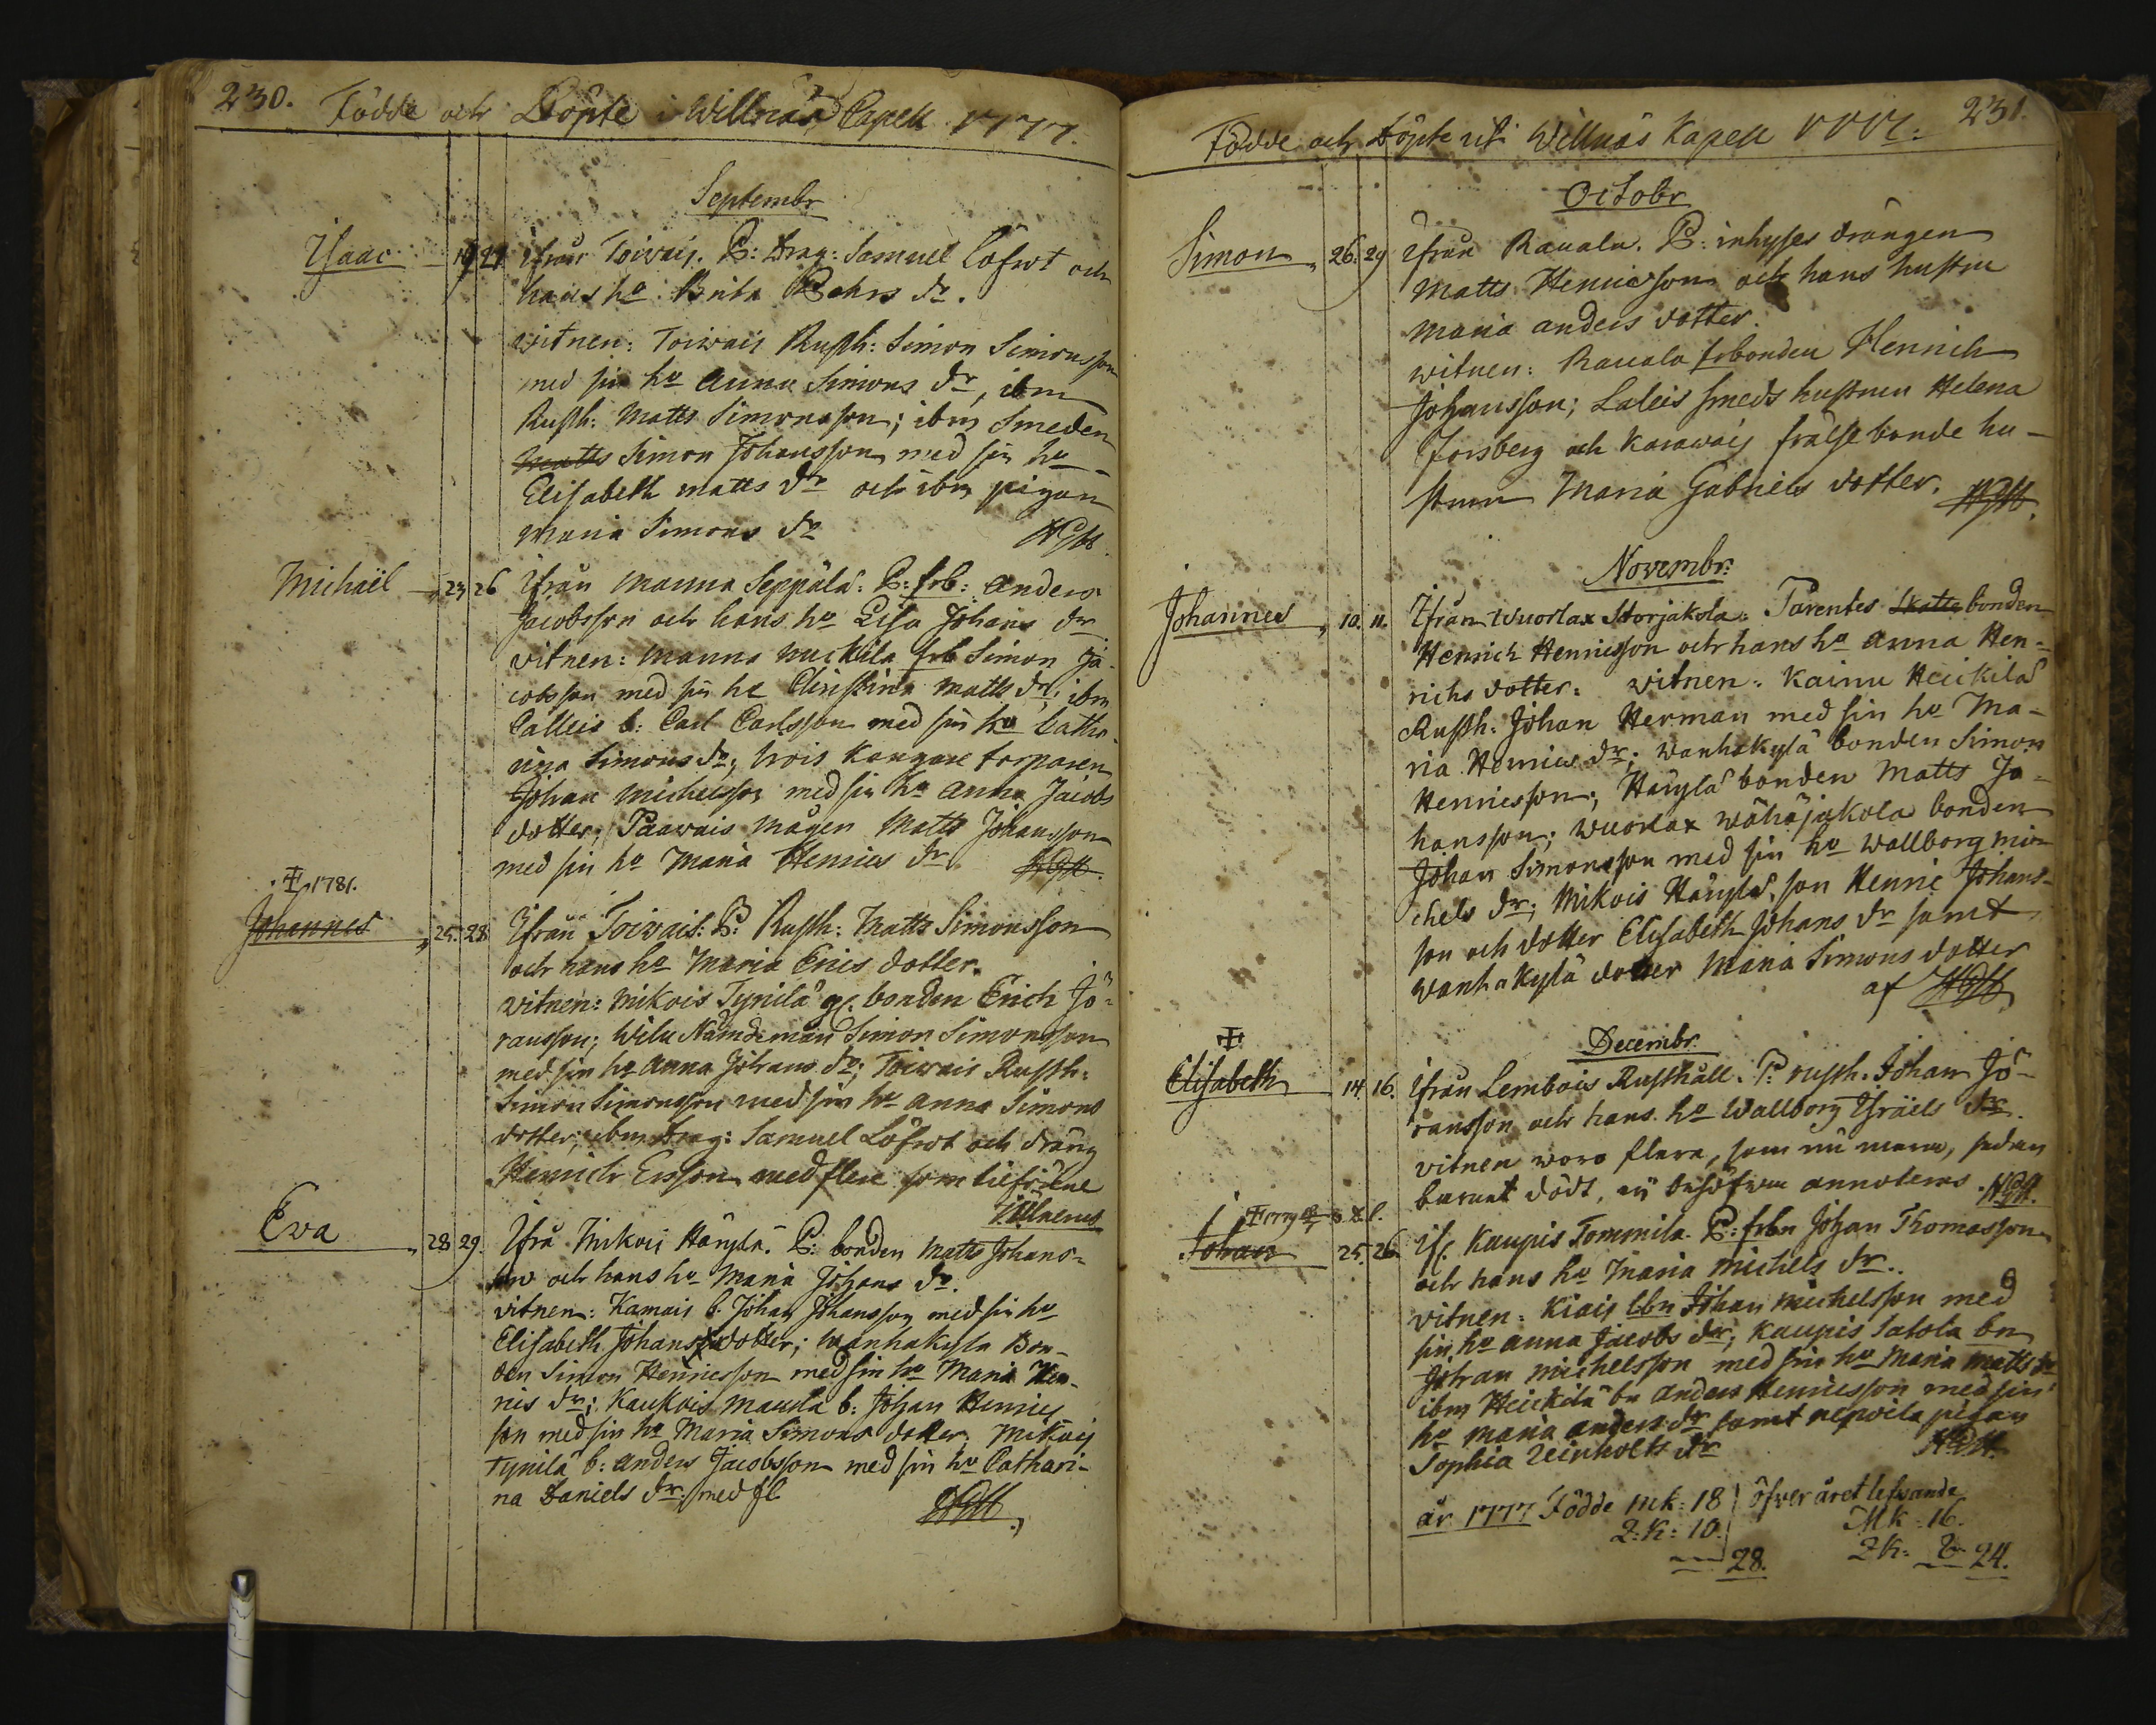 230. Födde och Döpte i Willnäs Capell 1777.
Septembr
Isaac 19 21 Ifrån Toivais. P: Drag: Samuel Löfwt och
hans ho Brita Pehrs dr.
vitnen: Toivais Rusth: Simon Simonsson
med sin ho Anna Simons dr, ibm
Rusth: Matts Simonsson; ibm Smeden
Matts Simon Johansson med sin ho
Elisabeth Matts dr och ibm pigan
Maria Simons dr
Michaël 23 26 Ifrån Manna Seppälä: P: frb: Anders
Jacobsson och hans ho Lisa Johans dr
vitnen: Manna Muckila frb Simon Ja-
cobsson med sin ho Christina Matts dr; ibm
Calleis b: Carl Carlsson med sin ho Catha-
rina Simons dr; Krois Kangare torparen
Johan Michelsson med sin ho Anna Jacobs
dotter; Paavais mågen Matts Johansson
med sin ho Maria Henrics dr
1781.
Johannes 25. 28 Ifrån Toivais: P: Rusth: Matts Simonsson
och hans ho Maria Erics dotter.
vitnen: Mikois Tynilä gl. bonden Erich Jö-
ransson; Wilu Nämdeman Simon Simonsson
med sin ho Anna Johans dr; Toivais Rusth:
Simon Simonsson med sin ho Anna Simons
dotter; ibm Drag: Samuel Löfwt och dräng
Henrich Ersson med flere som tilförene
Eva 28 29. Ifrå Mikois Häyylä. P: bonden Matts Johans-
son och hans ho Maria Johans dr.
vitnen: Kamais b: Johan Johansson med sin ho
Elisabeth Johans dotter; Wanhakylä Bon-
den Simon Henricsson med sin ho Maria Hen-
rics dr; Kaukois Maula b: Johan Henrics
son med sin ho Maria Simons dotter; Mikois
Tynilä b: Anders Jacobsson med sin ho Cathari-
na Daniels dr. med fl.
Födde och Döpte uti Willnäs Kapell 1777. 231.
Octobr
Simon 26. 29 Ifrån Rauala. P: inhyses drängen
Matts Henricsson och hans hustru
Maria Anders dotter.
witnen: Rauala frbonden Henrich
Johansson; Laleis smeds hustrun Helena
Forsberg och Karawais frälsebonde hu-
strun Maria Gabriels dotter.
Novembr:
Johannes 10. 11. Ifrån Wuorlax Storjakola: Parentes Skatte bonden
Henrich Henricsson och hans ho Anna Hen-
richs dotter: witnen: Kainu Heickilä
Rusth: Johan Herman med sin ho Ma-
ria Henrics dr; Wanhakylä bonden Simon
Henricsson; Häyylä bonden Matts Jo-
hansson; Wuorlax Wähäjakola bonden
Johan Simonsson med sin ho Wallborg Mi-
chels dr; Mikois Häyylä, son Henric Johans-
son och dotter Elisabeth Johans dr samt
Wanhakylä dotter Maria Simons dotter
af
Decembr.
Elisabeth 14. 16. Ifrån Lembois Rusthåll. P: rusth. Johan Jö-
ransson och hans ho Wallborg Israels dr.
vitnen woro flera, som nu mera, sedan
barnet dödt, ej behöfwa annoteras.
Johan 25. 26. If. Kaupis Tommila. P: frbn Johan Thomasson
och hans ho Maria Michels dr.
vitnen: Kiais lbn Johan Michelsson med
sin ho Anna Jacobs dr; Kaupis Satola bn
Johan Michelsson med sin ho Maria Matts dr
ibm Heickilä bn Anders Henricsson med sin
ho Maria Anders dr samt pigan
Sophia Reinholts dr
år 1777 Födde Mk: 18 öfver året lefvande
Q: K: 10. Mk: 16.
28. Qk: 8 24.